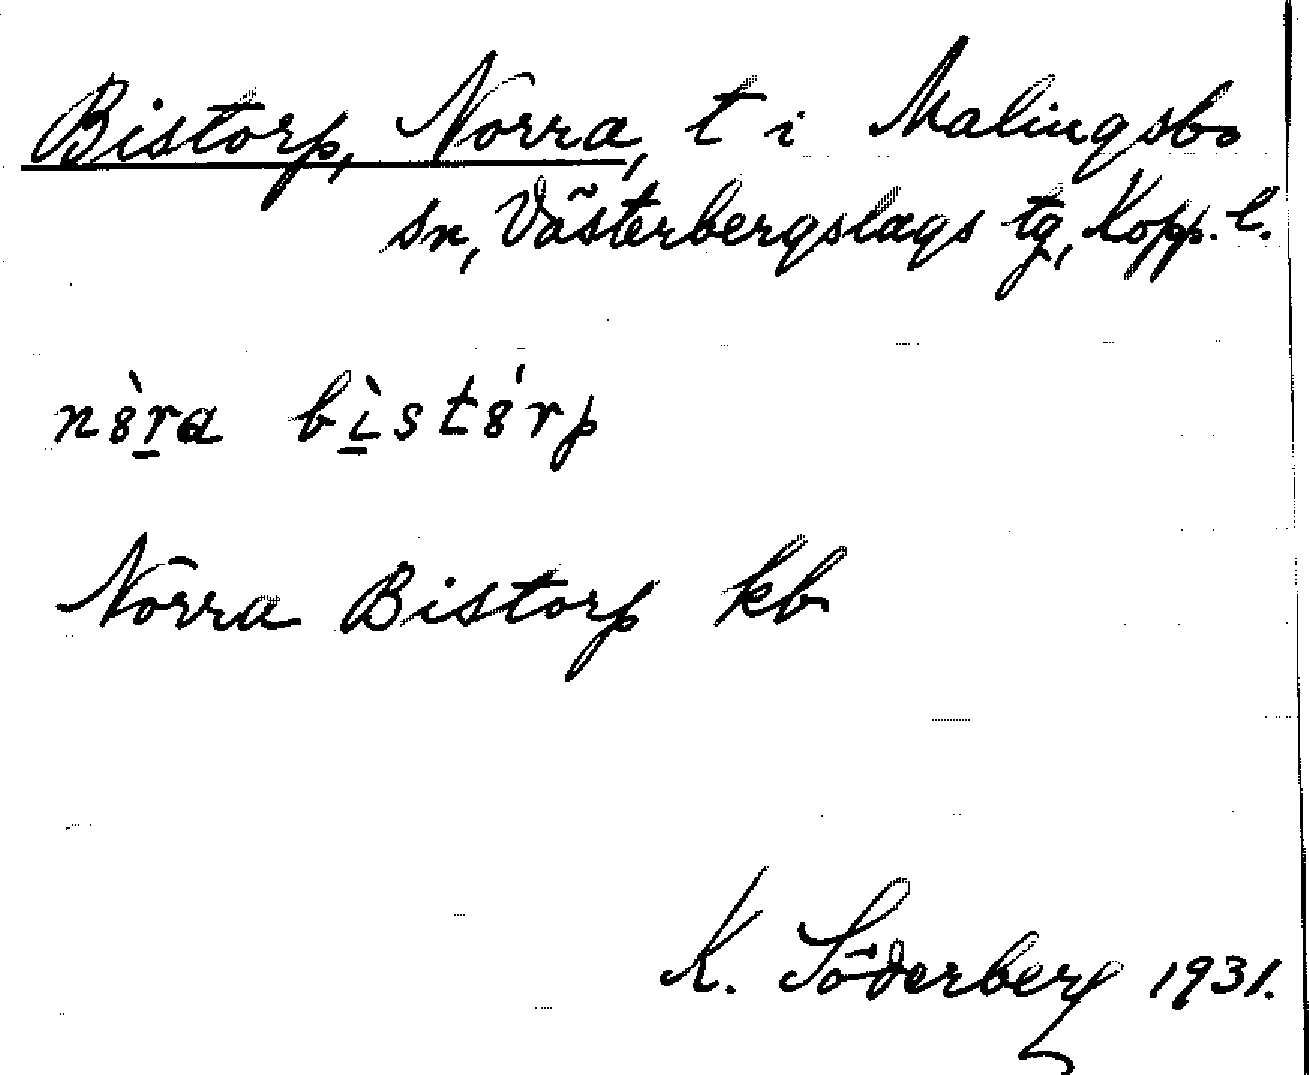 Bistorp, Norra, t i Malingsbo
sn, Västerbergslags tg, Kopp. l.
n8̀r̲a bì̲st8́rp
Norra Bistorp kb
K. Söderberg 1931.